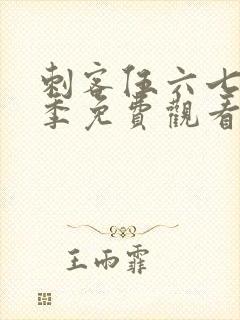 刺客伍六七
季免費觀看
王雨霏